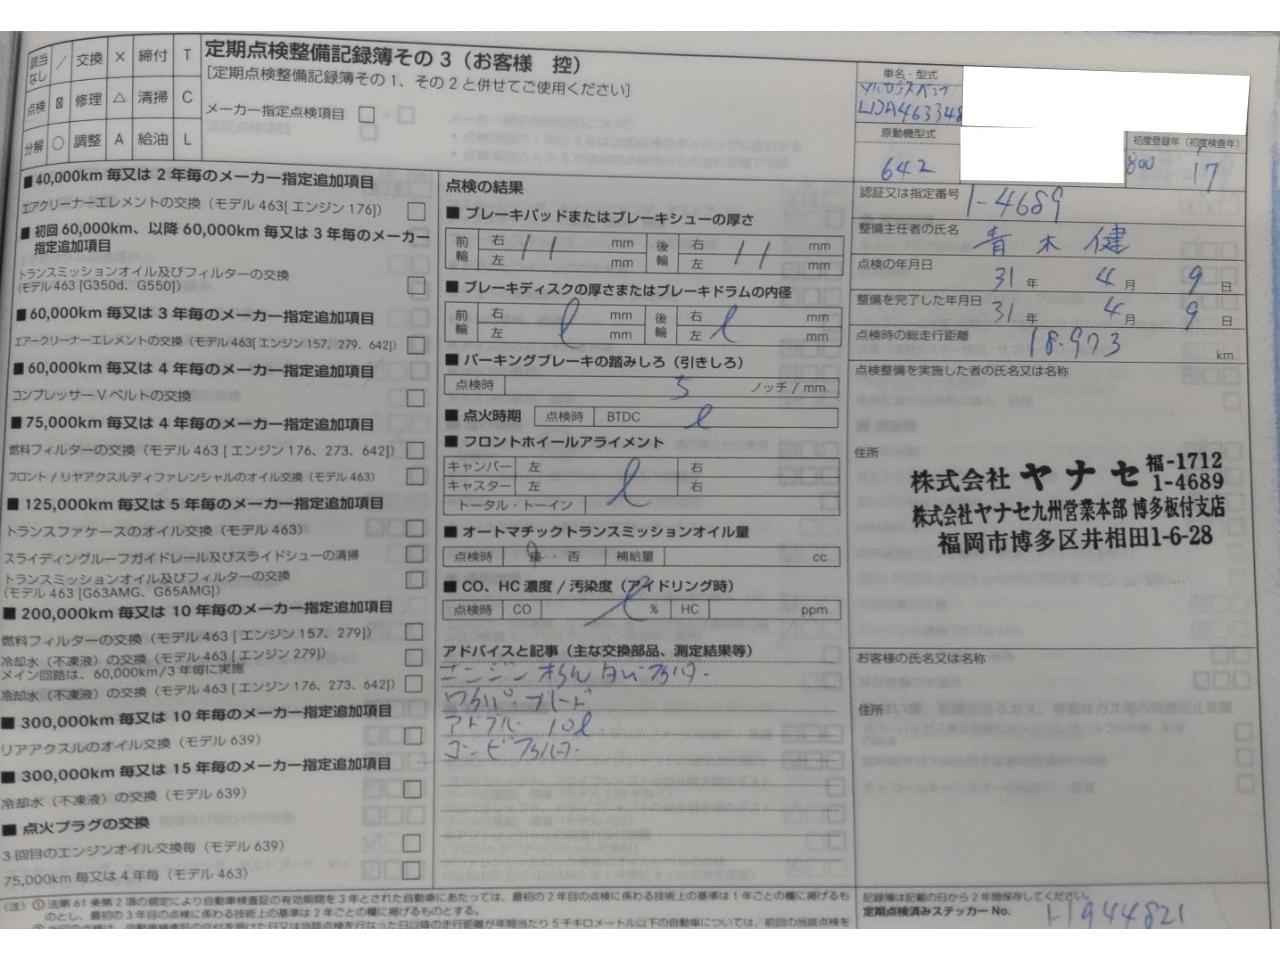 該当なし / 交換 × 締付 T
点検 修理 △ 清掃 C
分解 ○ 調整 A 給油 L
定期点検整備記録簿その3(お客様 控)
[定期点検整備記録簿その1、その2と併せてご使用ください]
メーカー指定点検項目
■40,000km毎又は2年毎のメーカー指定追加項目
エアクリーナーエレメントの交換(モデル463[エンジン176])
■初回60,000km、以降60,000km毎又は3年毎のメーカー
指定追加項目
トランスミッションオイル及びフィルターの交換
(モデル463 [G350d、G550])
■60,000km毎又は3年毎のメーカー指定追加項目
エアークリーナーエレメントの交換(モデル463[エンジン157、279、642])
■60,000km毎又は4年毎のメーカー指定追加項目
コンプレッサーVベルトの交換
■75,000km毎又は4年毎のメーカー指定追加項目
燃料フィルターの交換(モデル463 [エンジン176、273、642])
フロント/リヤアクスルディファレンシャルのオイル交換(モデル463)
■125,000km毎又は5年毎のメーカー指定追加項目
トランスファケースのオイル交換(モデル463)
スライディングルーフガイドレール及びスライドシューの清掃
トランスミッションオイル及びフィルターの交換
(モデル463 [G63AMG、G65AMG])
■200,000km毎又は10年毎のメーカー指定追加項目
燃料フィルターの交換(モデル463 [エンジン157、279])
冷却水(不凍液)の交換(モデル463 [エンジン279])
メイン回路は、60,000km/3年毎に実施
冷却水(不凍液)の交換(モデル463 [エンジン176、273、642])
■300,000km毎又は10年毎のメーカー指定追加項目
リアアクスルのオイル交換(モデル639)
■300,000km毎又は15年毎のメーカー指定追加項目
冷却水(不凍液)の交換(モデル639)
■点火プラグの交換
3回目のエンジンオイル交換毎(モデル639)
75,000km毎又は4年毎(モデル463)
点検の結果
■ブレーキパッドまたはブレーキシューの厚さ
前輪 右 11 mm 後輪 右 11 mm
左 mm 左 mm
■ブレーキディスクの厚さまたはブレーキドラムの内径
前輪 右 mm 後輪 右 mm
左 mm 左 mm
■パーキングブレーキの踏みしろ(引きしろ)
点検時 5 ノッチ/mm
■点火時期 点検時 BTDC
■フロントホイールアライメント
キャンバー 左 右
キャスター 左 右
トータル・トーイン
■オートマチックトランスミッションオイル量
点検時 良・否 補給量 cc
■CO、HC濃度/汚染度(アイドリング時)
点検時 CO % HC ppm
アドバイスと記事(主な交換部品、測定結果等)
エンジンオイル
ワイパーブレード
アドブルー 10ℓ
コンビフィルター
車名・型式
メルセデスベンツ
LDA463348
原動機型式
642
800
初度登録年(初度検査年)
17
認証又は指定番号 1-4689
整備主任者の氏名 青木 健
点検の年月日 31年 4月 9日
整備を完了した年月日 31年 4月 9日
点検時の総走行距離 18.973 km
点検整備を実施した者の氏名又は名称
住所
株式会社 ヤナセ 福-1712
1-4689
株式会社ヤナセ九州営業本部 博多板付支店
福岡市博多区井相田1-6-28
お客様の氏名又は名称
住所
(注) ①法第61条第2項の規定により自動車検査証の有効期間を3年とされた自動車にあたっては、最初の2年目の点検に係わる技術上の基準は1年ごとの欄に掲げるも
のとし、最初の3年目の点検に係わる技術上の基準は2年ごとの欄に掲げるものとする。
記録簿は記載の日から2年間保存してください。
定期点検済みステッカーNo. H944821